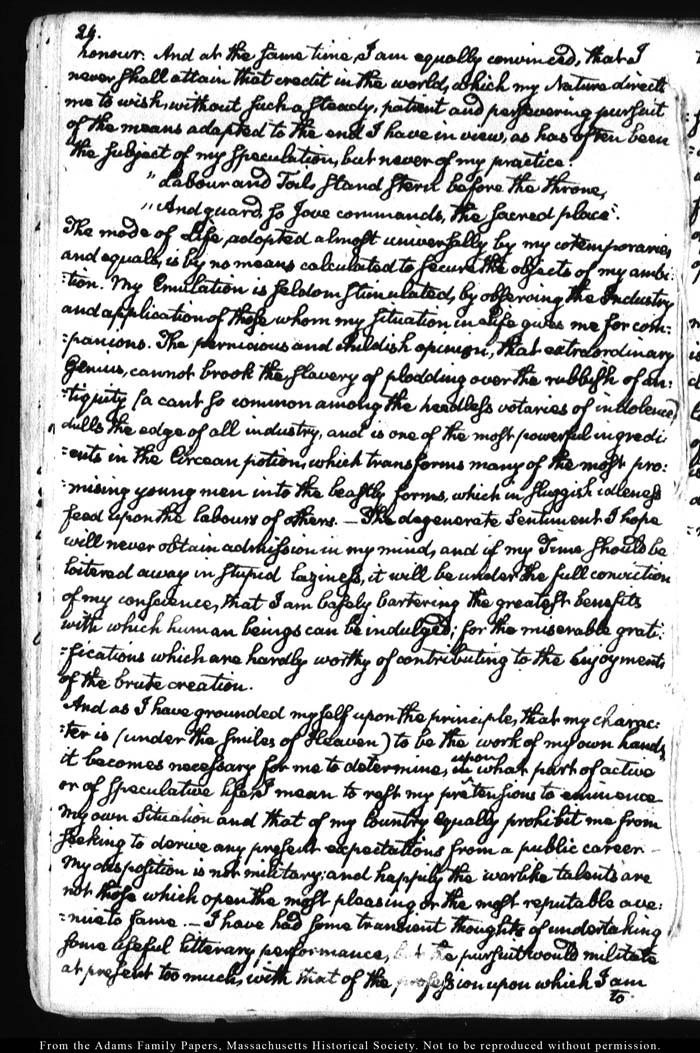 24.
honour. And at the same time, I am equally convinced, that I
never shall attain that credit in the world, which my Nature directs
me to wish, without such a steady, patient and persevering pursuit
of the means adapted to the end I have in view, as has often been
the subject of my speculation, but never of my practice.
"Labour and Toils stand stern before the throne,
"And guard, so Jove commands, the sacred place".
The mode of Life, adopted almost universally by my cotemporaries
and equals, is by no means calculated to secure the objects of my ambi:
:tion. My Emulation is seldom stimulated, by observing the Industry
and application of those whom my situation in Life gives me for com:
:panions. The pernicious and childish opinion, that extraordinary
Genius, cannot brook the slavery of plodding over the rubbish of an:
:tiquity (a cant so common among the heedless votaries of indolence)
dulls the edge of all industry, and is one of the most powerful ingredi:
:ents in the Circean potion, which transforms many of the most pro:
:mising young men into the beastly forms, which in sluggish idleness
feed upon the labours of others. — The degenerate sentiment I hope
will never obtain admission in my mind, and if my Time should be
loitered away in stupid laziness, it will be under the full conviction
of my conscience, that I am basely bartering the greatest benefits
with which human beings can be indulged; for the miserable grati:
:fications which are hardly worthy of contributing to the Enjoyments
of the brute creation.
And as I have grounded myself upon the principle, that my charac:
:ter is (under the smiles of Heaven) to be the work of my own hands,
it becomes necessary for me to determine, upon what part of active
or of speculative life, I mean to rest my pretensions to eminence
My own Situation and that of my Country equally prohibit me from
seeking to derive any present expectations from a public career —
My disposition is not military; and happily the warlike talents are
not those which open the most pleasing or the most reputable ave:
:nue to fame. — I have had some transient thoughts of undertaking
some useful litterary performance, but the pursuit would militate
at present too much, with that of the profession upon which I am
to
From the Adams Family Papers, Massachusetts Historical Society. Not to be reproduced without permission.